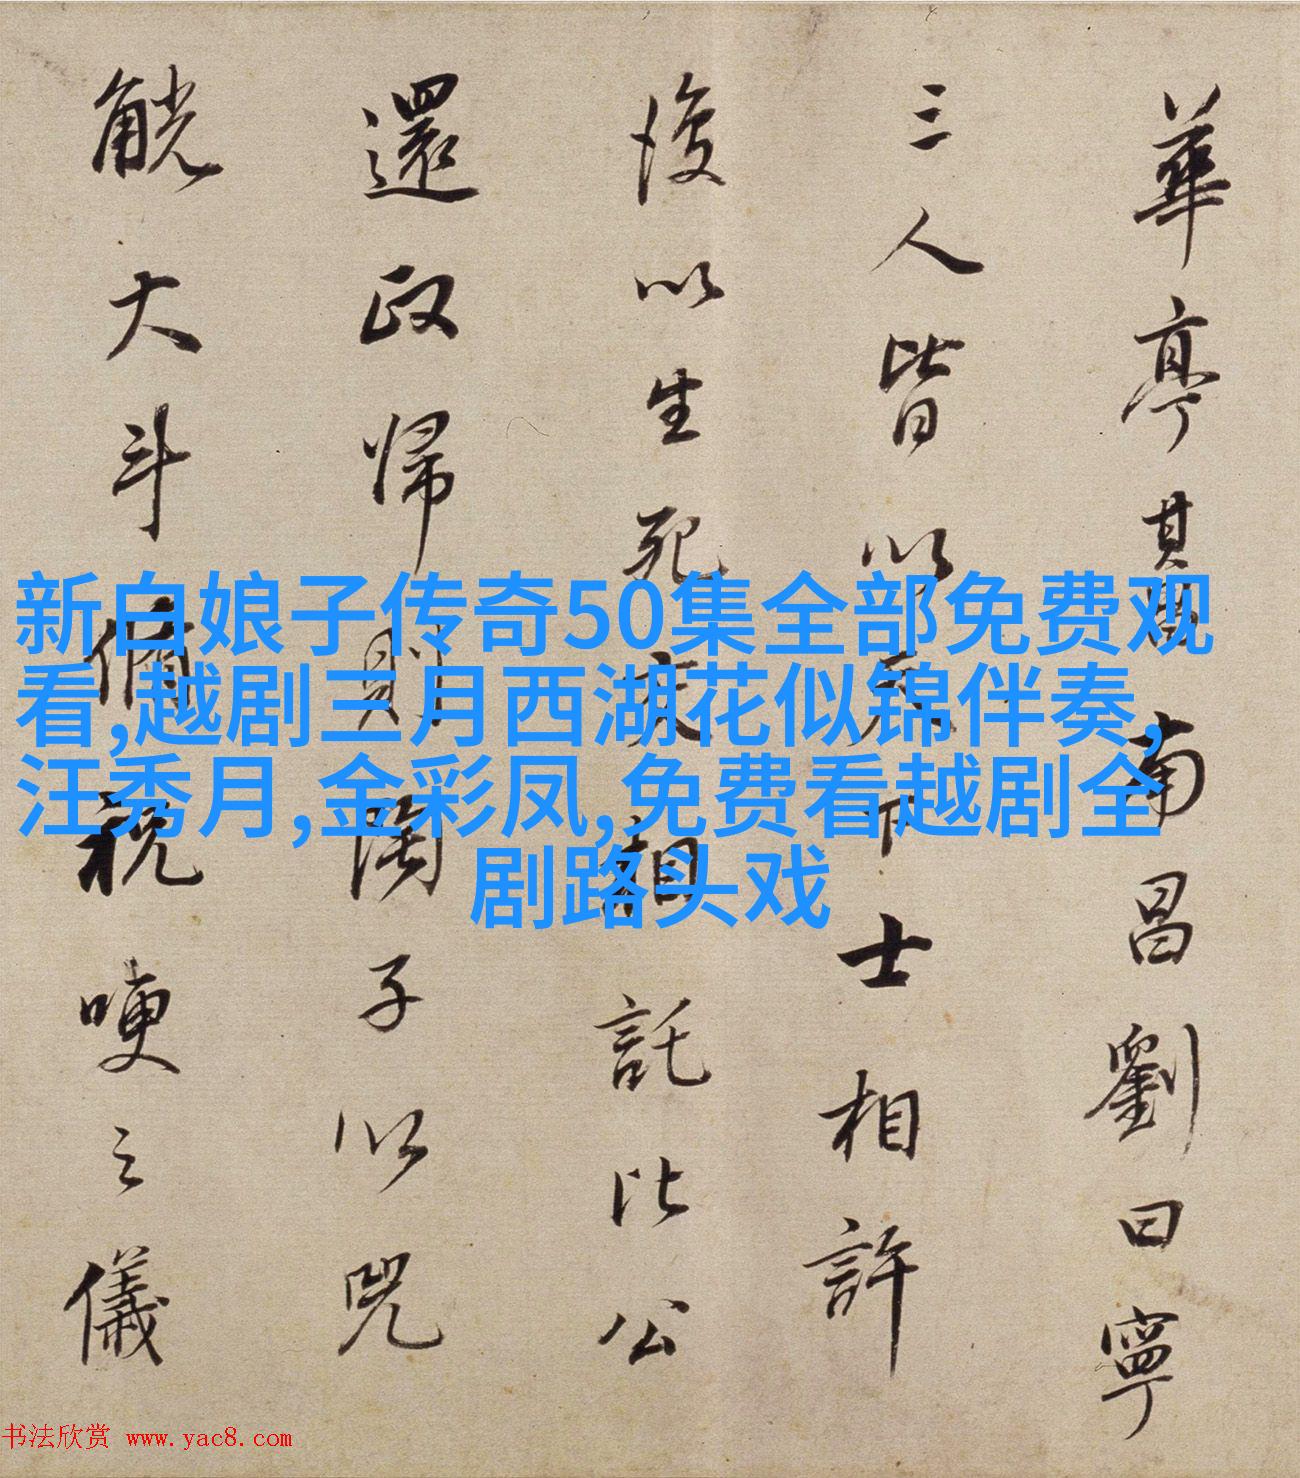 華亭其昌南昌劉曰寧
三人皆以天下士相許
後以生死交相託比公
還政歸則陶子以兕
觥大斗脩祝哽之儀
新白娘子传奇50集全部免费观
看,越剧三月西湖花似锦伴奏,
汪秀月,金彩凤,免费看越剧全
剧路头戏
书法欣赏 www.yac8.com